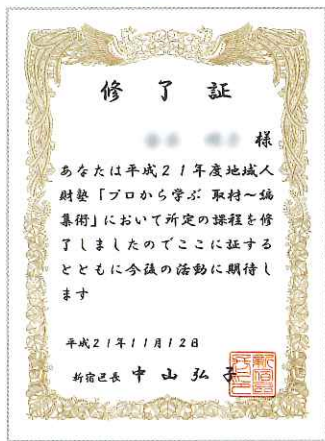 修了証
様
あなたは平成21年度地域人
財塾「プロから学ぶ 取材～編
集術」において所定の課程を修
了しましたのでここに証する
とともに今後の活動に期待し
ます
平成21年11月12日
新宿区長 中山弘子